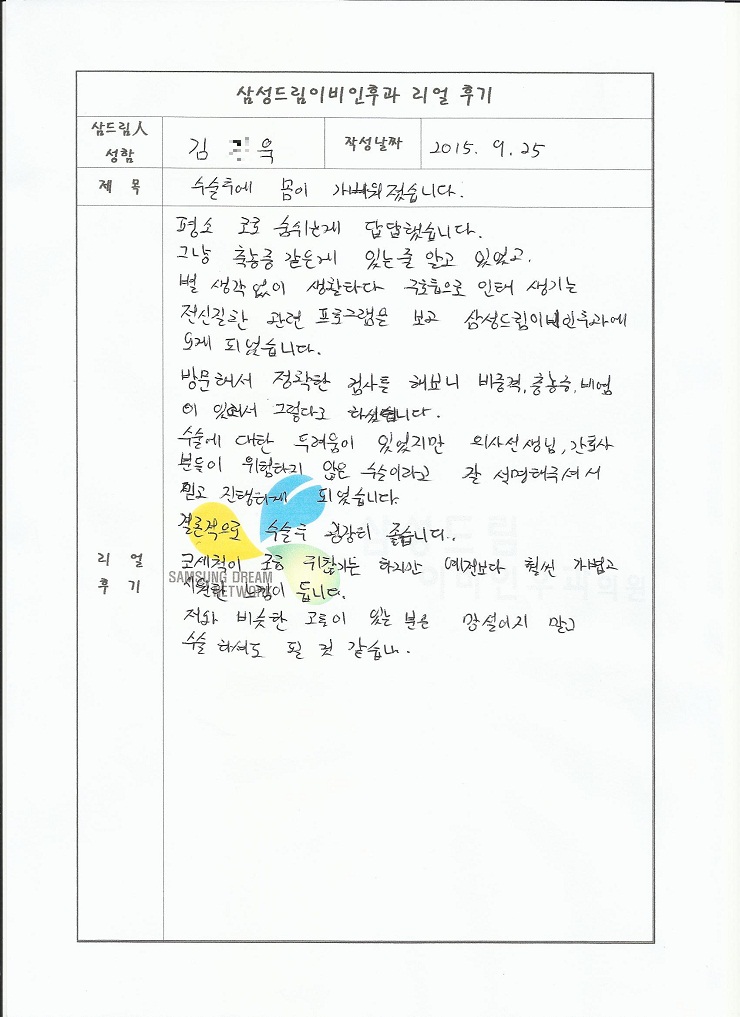 삼성드림이비인후과 리얼 후기
삼드림人
성함
김 욱
작성날짜
2015. 9. 25
제 목
수술후에 몸이 가벼워졌습니다.
평소 코로 숨쉬는게 답답했습니다.
그냥 축농증 같은게 있는줄 알고 있었고.
별 생각없이 생활하다 구호흡으로 인해 생기는
전신질환 관련 프로그램을 보고 삼성드림이비인후과에
오게 되었습니다.
방문해서 정확한 검사를 해보니 비중격, 축농증, 비염
이 있어서 그렇다고 하셨습니다.
수술에 대한 두려움이 있었지만 의사선생님, 간호사
분들이 위험하지 않은 수술이라고 잘 설명해주셔서
믿고 진행하게 되었습니다.
결론적으로 수술후 굉장히 좋습니다..
리 얼
후 기
코세척이 조금 귀찮기는 하지만 예전보다 훨씬 가볍고
시원한 느낌이 듭니다.
저와 비슷한 고름이 있는 분은 망설이지 말고
수술 하셔도 될 것 같습니.
SAMSUNG DREAM
NETWORK
삼성드림
이비인후과의원